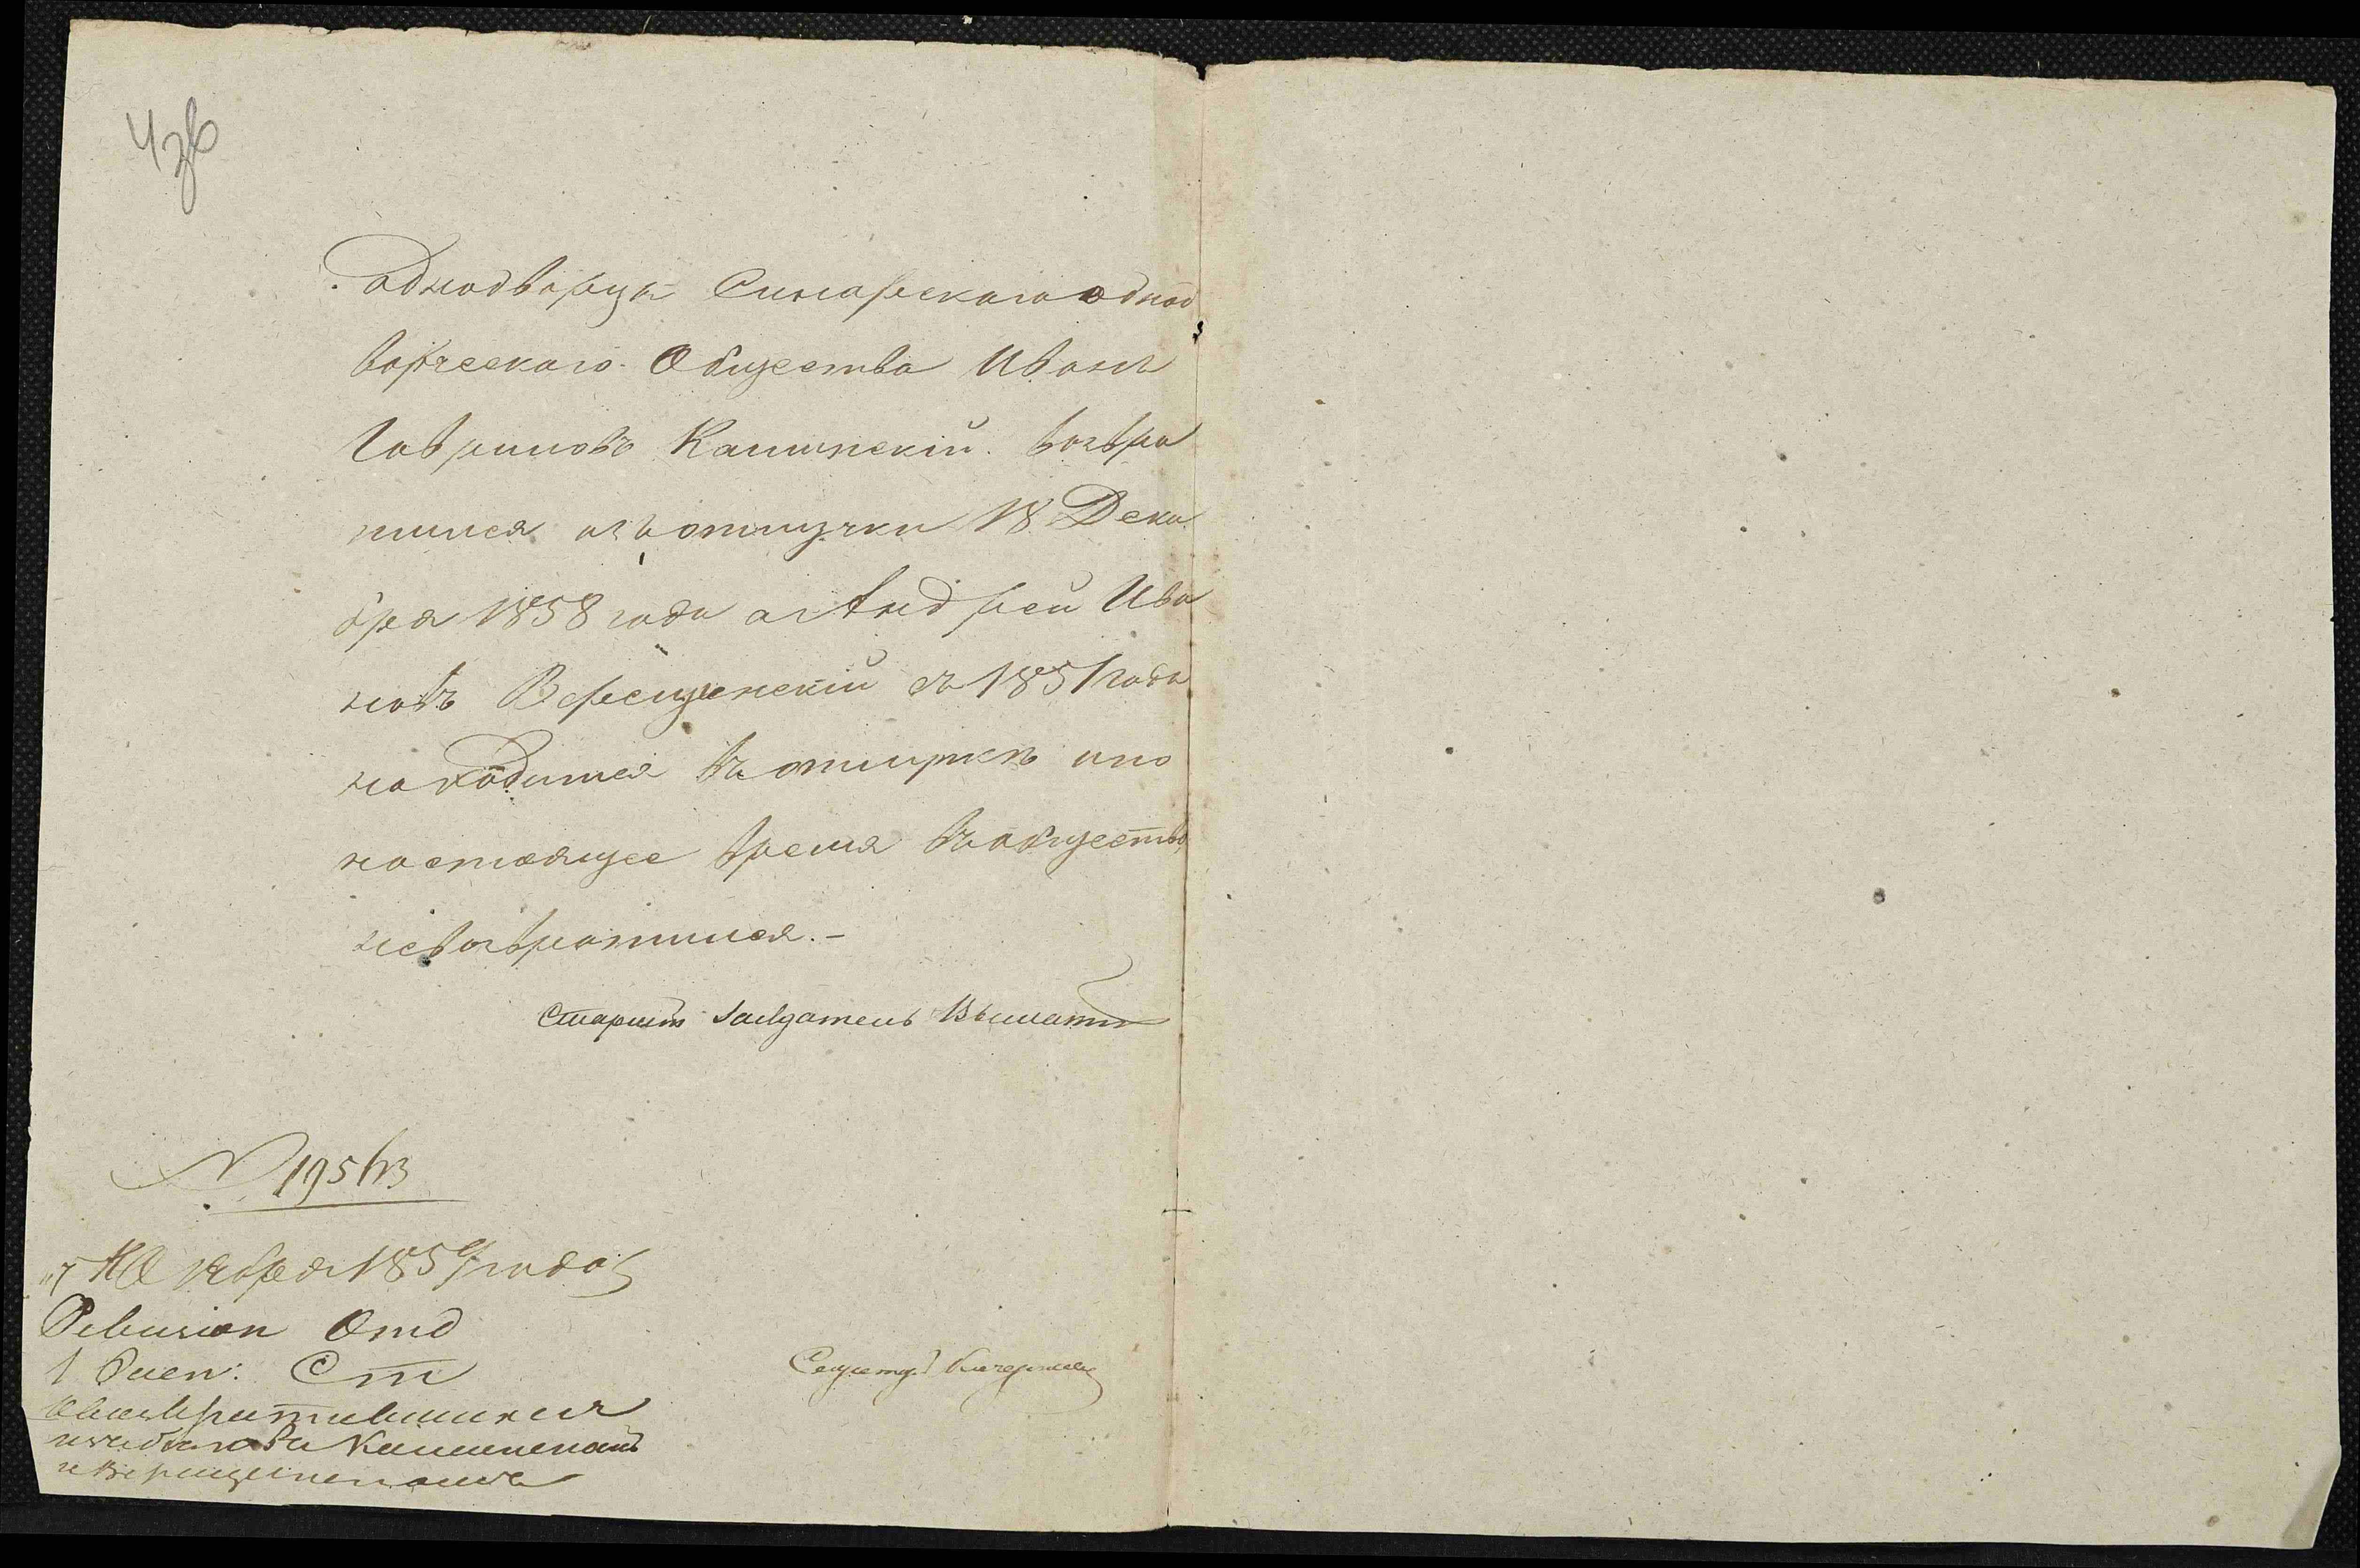 43б
Однодворцъ Синарскаго однод
ворческаго Общества Иванъ
Гавриловъ Калинскій возвра
тился изъ отлучки 18 Дека
бря 1858 года а Андрей Ива
новъ Верещинскій съ 1851 года
находится въ отлучкѣ и по
настоящее время въ общество
невозвратился.-
Старшій Засѣдатель
№ 19563
7 Октября 1859 года
Ревизіон Отд
1 Ст
о возвратившихся